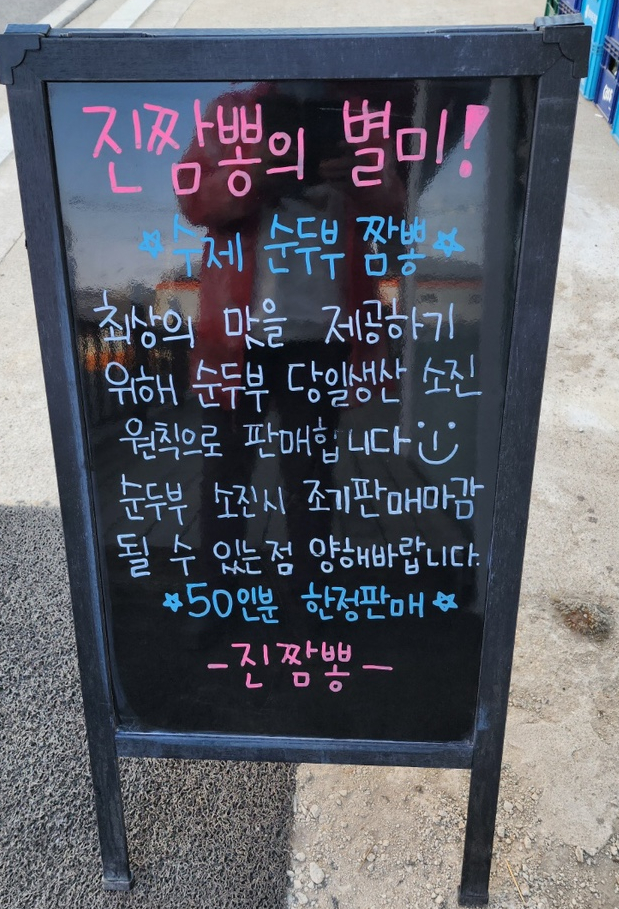 진짬뽕의 별미!
★수제 순두부 짬뽕★
최상의 맛을 제공하기
위해 순두부 당일생산 소진
원칙으로 판매합니다
순두부 소진시 조기판매마감
될 수 있는점 양해바랍니다.
★50인분 한정판매★
-진짬뽕-